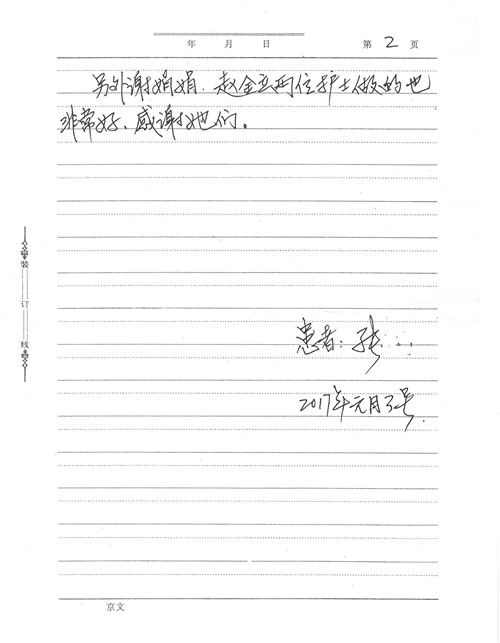 年 月 日 第 2 页
另外谢娟娟、赵金玉两位护士做的也
非常好、感谢她们。
装
订
线
患者：张
2017年元月3号
京文